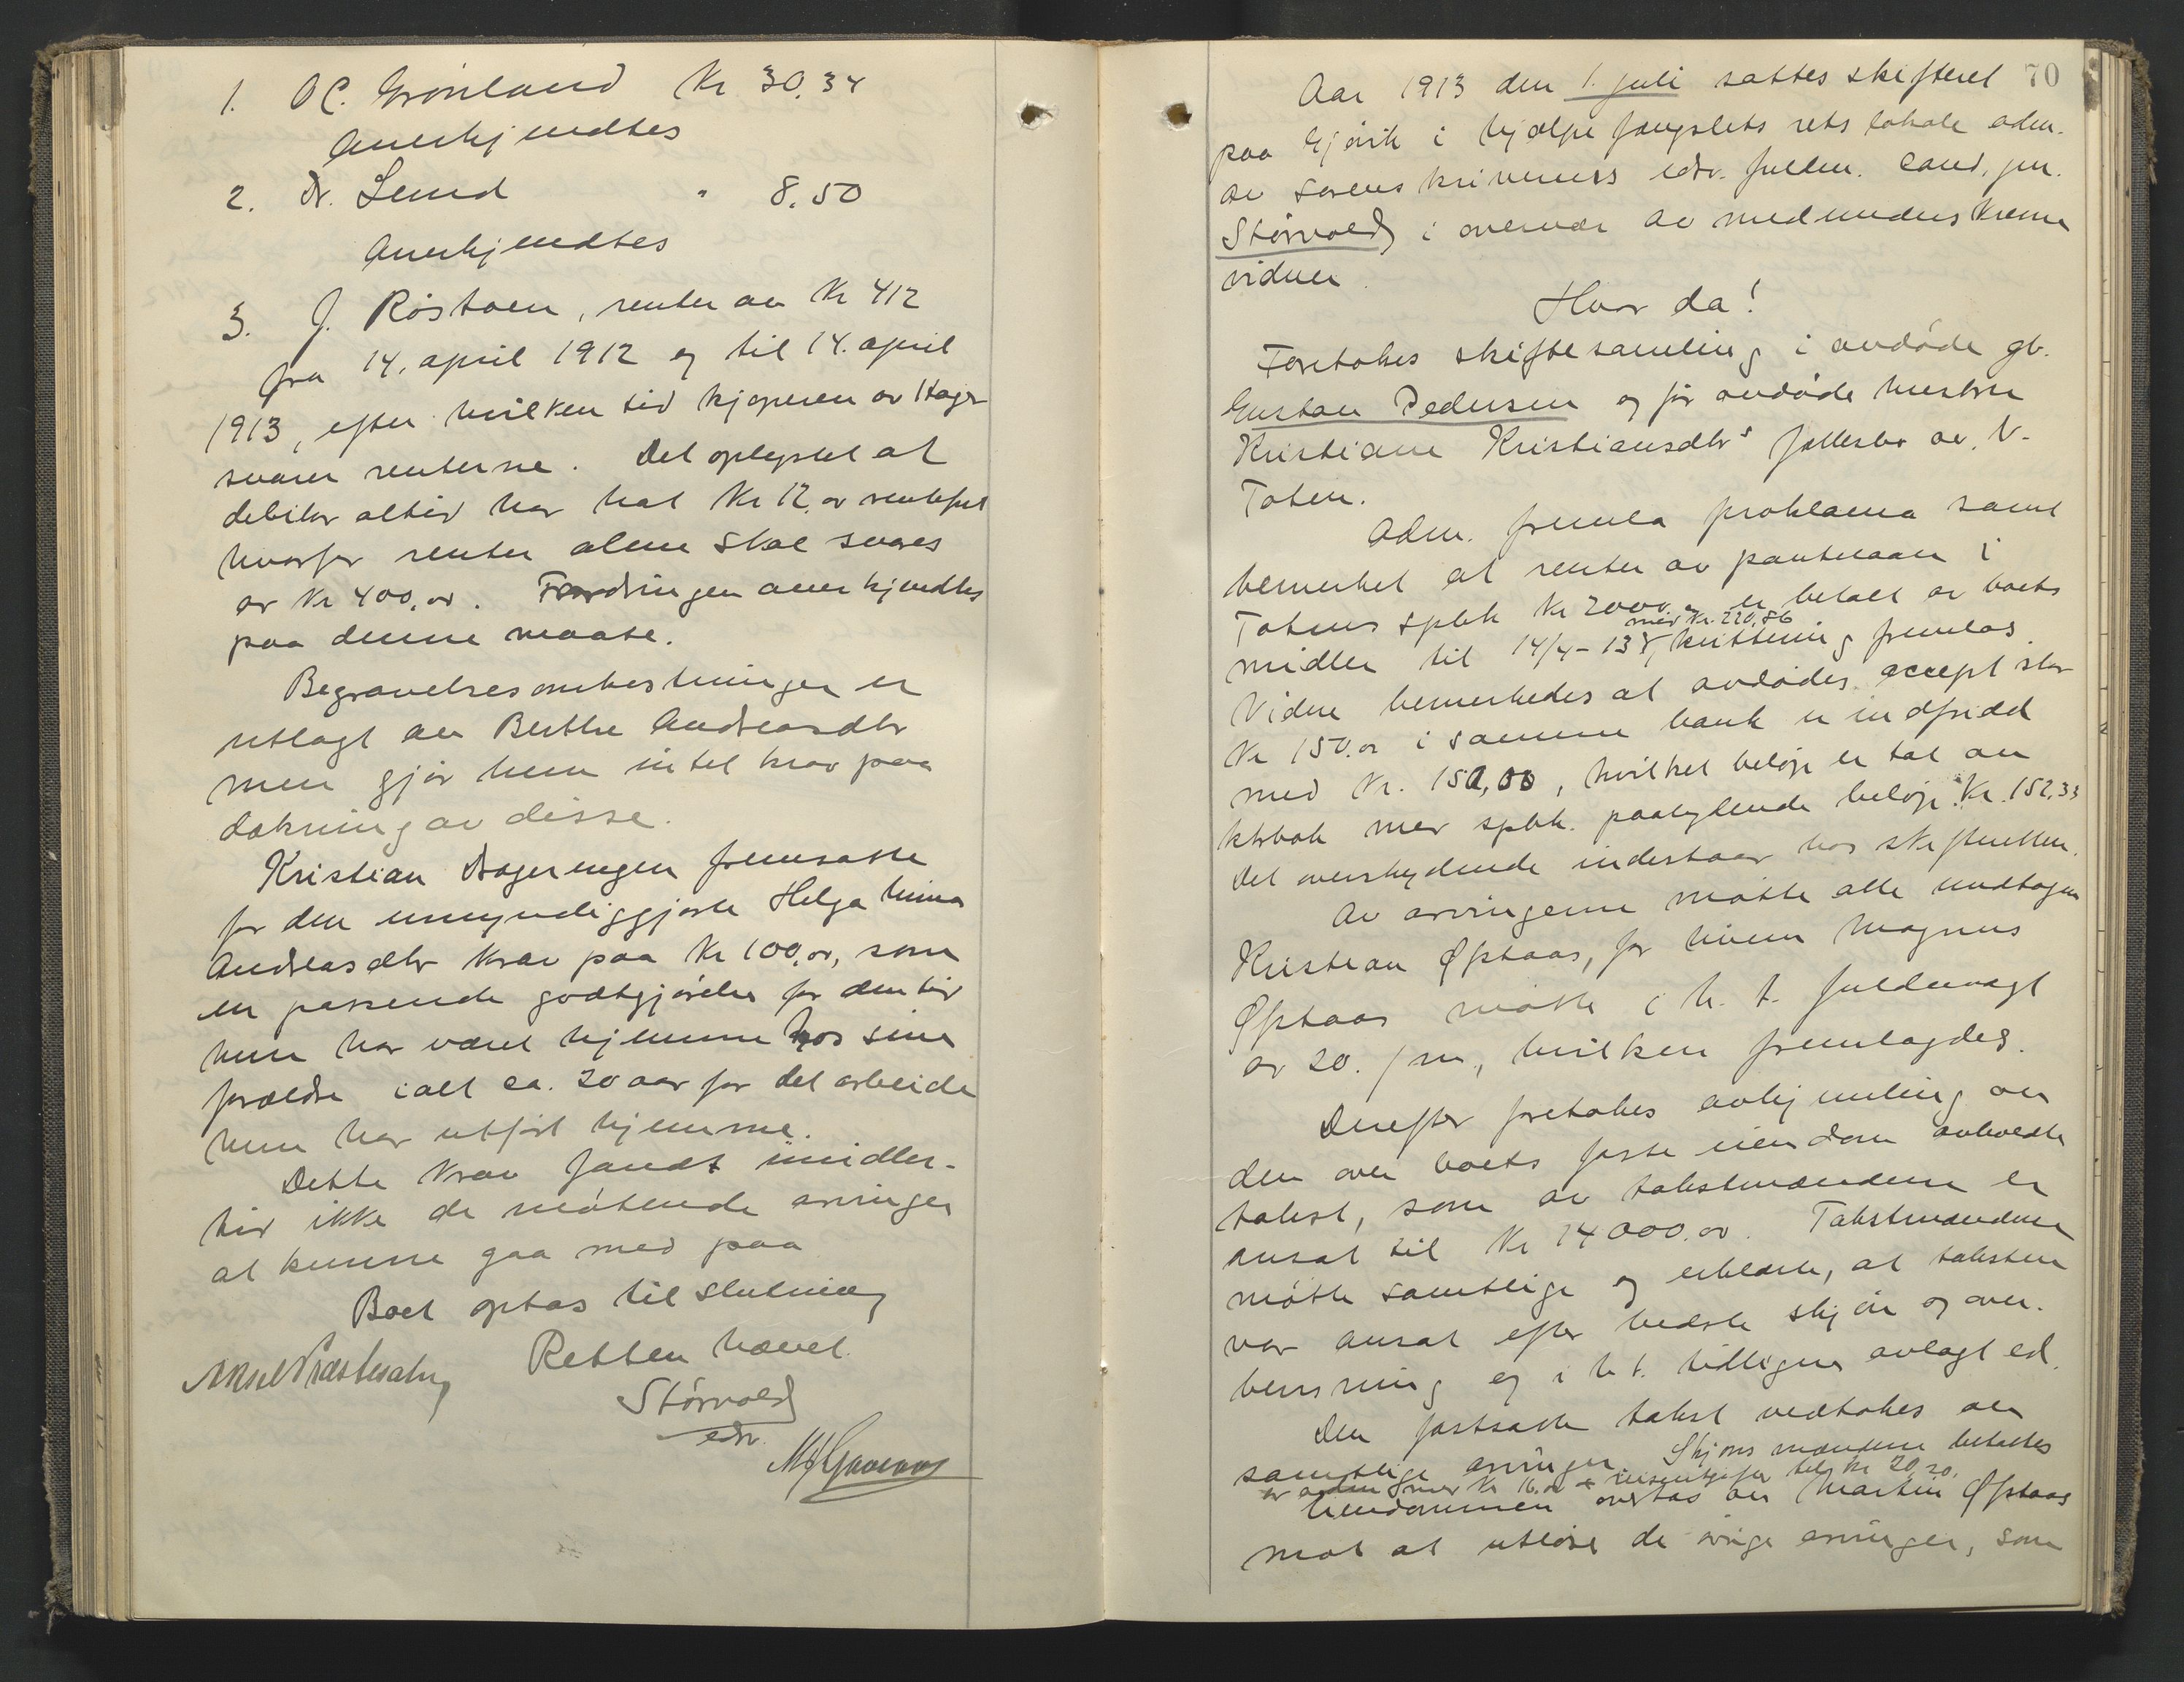 1. O C. Grønland Kr 30,34
Anerkjendtes
2. Dr. Lund " 8,50
Anerkjendtes
3. J. Røstøen, renter av Kr 412
fra 14. april 1912 og til 14. april
1913, efter hvilken tid kjøperen av Hager
svarer renterne. Det oplystes at
debitor altid har hat Kr 12,00 rentefrit
hvorfor renter alene skal svares
av Kr 400,00. Fordringen anerkjendtes
paa denne maate.
Begravelsesomkostninger er
utlagt av Berthe Andreasdtr
men gjør hun intet krav paa
dækning av disse.
Kristian Hagerengen fremsatte
for den umyndiggjorte Helga
Andreasdtr krav paa Kr 100,00, som
en passende godtgjørelse for den tid
hun har været hjemme hos sine
forældre ialt ca. 20 aar for det arbeide
hun har utført hjemme.
Dette krav fandt imidler-
tid ikke de møtende arvinger
at kunne gaa med paa
Boet optas til slutning
Retten hævet.
Størvold
edv.
70
Aar 1913 den 1. juli sattes skifteret
paa Gjøvik i hjælpefængslets rets lokale adm.
av sorenskriverens edsv. fuldm. cand. jur.
Størvold i overvær av medunderskrevne
vidner.
Hvor da!
Foretokes skiftesamling i avdøde gb.
Gustav Pedersen og før avdøde hustru
Kristiane Kristiansdtrs fællesbo av V-
Toten.
Adm. fremla proklama samt
bemerket at renter av pantelaan i
Totens spbk Kr 2000,00 er betalt av boets
med Kr. 220,86
midler til 14/4-13, kvittering fremlaa.
Videre bemerkedes at avdødes accept stor
Kr 150,00 i samme bank er indfridd
med Kr. 150,00, hvilket beløp er tat av
ktrbok mer spbk. paalydende beløp Kr. 152,33
Det overskydende indestaar hos skifteretten.
Av arvingerne møtte alle undtagen
Kristian Øfstaas, for hvem Magnus
Øfstaas møtte i h. t. fuldmagt
av 20. f m., hvilken fremlagdes.
Derefter foretokes avhjemling av
den over boets faste eiendom avholdte
takst, som av takstmændene er
ansat til Kr 14000,00. Takstmændene
møtte samtlige og erklærte, at taksten
var ansat efter bedste skjøn og over-
bevisning og i h t. tidligere avlagt ed.
Den fastsatte takst vedtokes av
samtlige arvinger. Skjønsmændene betaltes
Eiendommen overtas av Martin Øfstaas
mot at utløse de øvrige arvinger, som